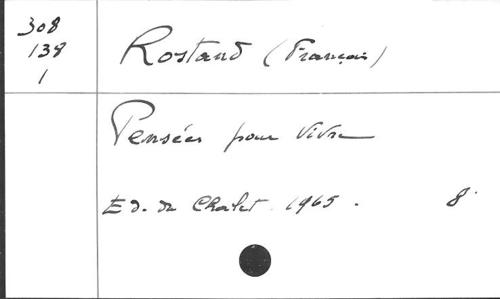 308
138
1
Rostand (François)
Pensées pour Vivre
Ed. du Chalet. 1965. 8°